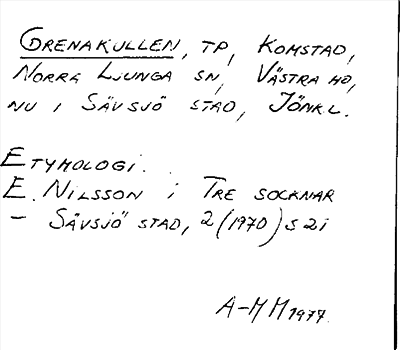 GRENAKULLEN, TP, KOMSTAD,
NORRA LJUNGA SN, VÄSTRA HD,
NU I SÄVSJÖ STAD, JÖNK.L.
ETYMOLOGI.
E. NILSSON i TRE SOCKNAR
– SÄVSJÖ STAD, 2 (1970) S 21
A-M M 1977.